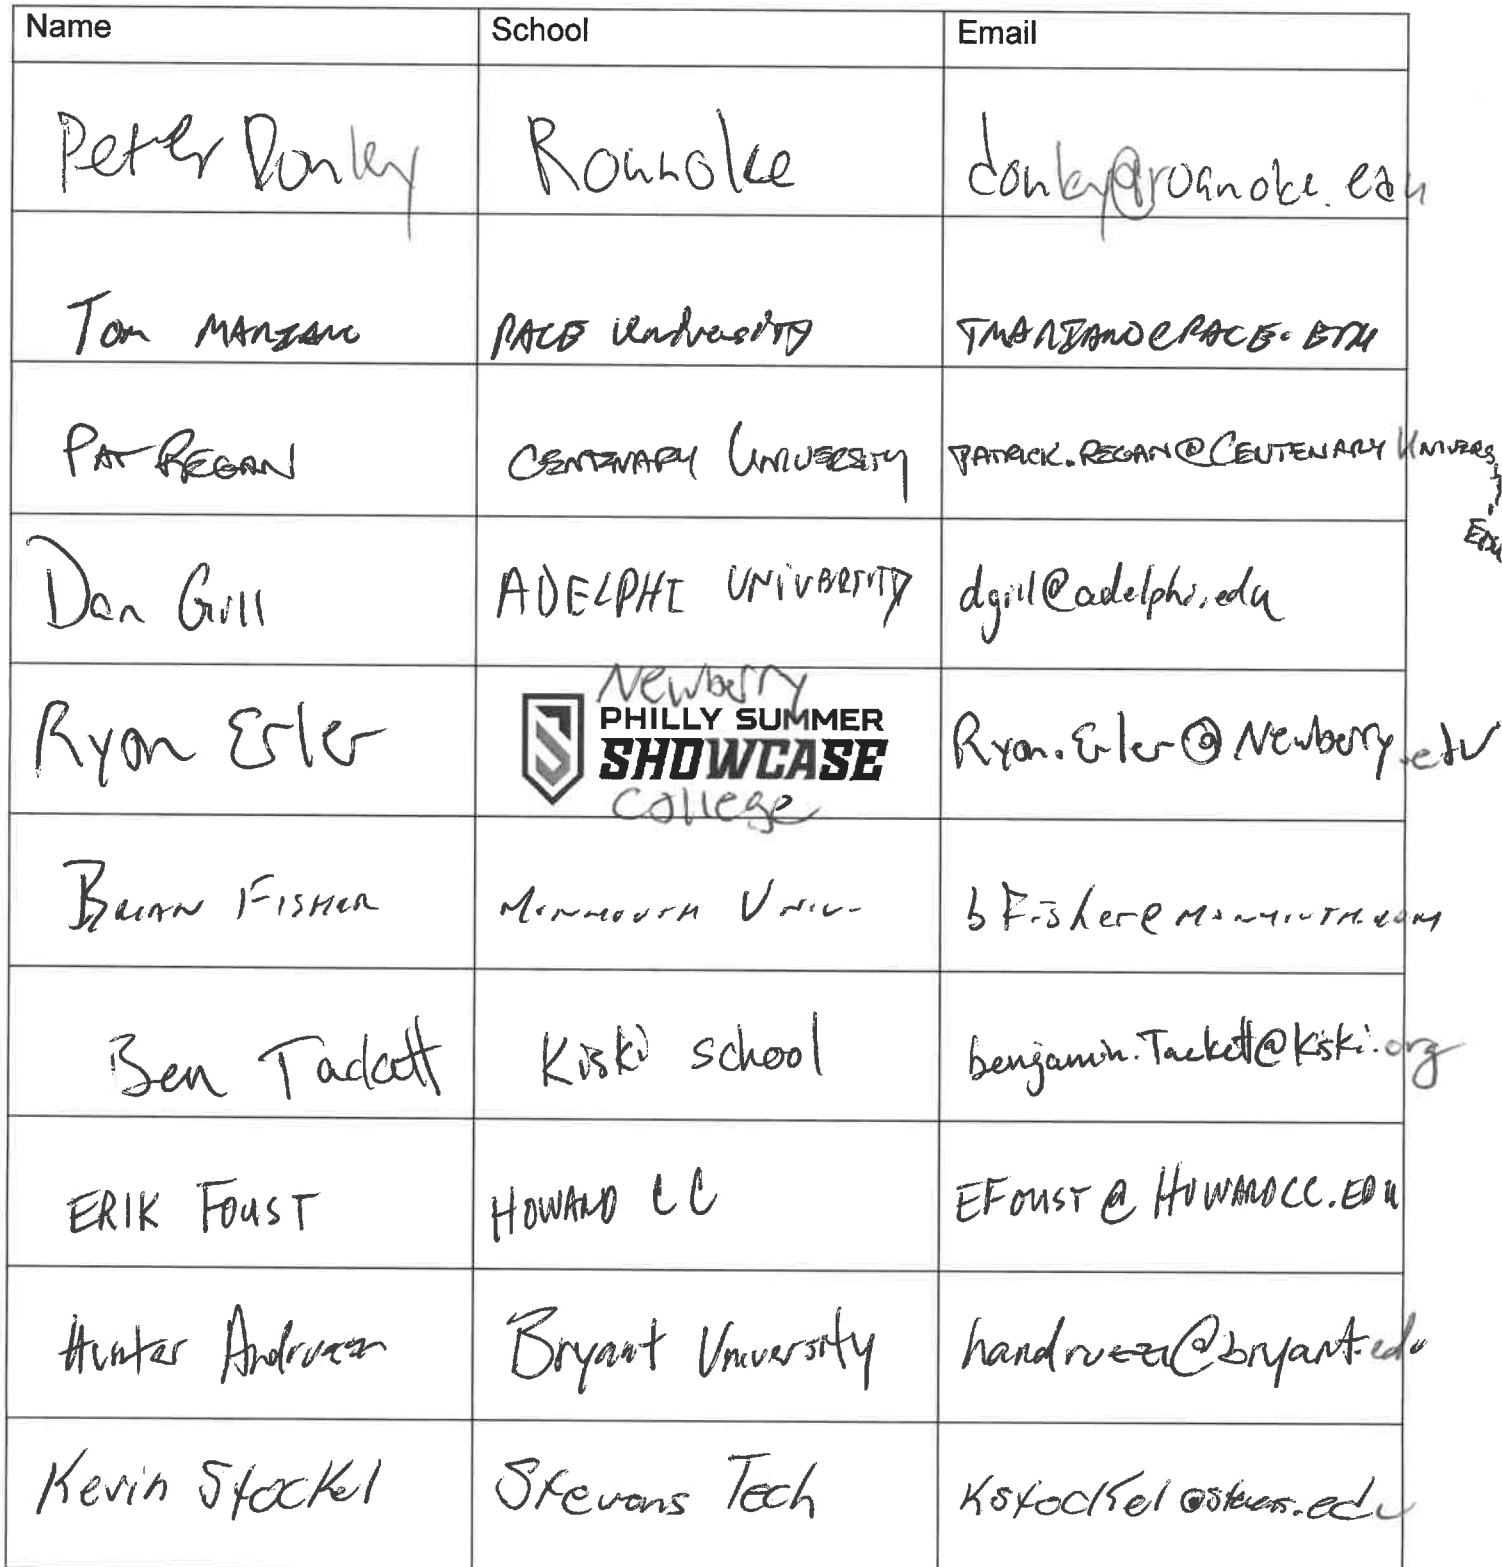 Name School Email
Peter Donley Roanoke donley@roanoke.edu
Tom MANZANO PACE University TMANZANO@PACE.EDU
PAT REGAN CENTENARY UNIVERSITY PATRICK.REGAN@CENTENARY UNIVERSITY.EDU
Dan Gill ADELPHI UNIVERSITY dgill@adelphi.edu
Newberry
PHILLY SUMMER
Ryan Erler SHOWCASE Ryan.Erler@Newberry.edu
College
BRIAN FISHER MONMOUTH UNIV. bFisher@MONMOUTH.COM
Ben Tackett Kiski school benjamin.Tackett@Kiski.org
ERIK FOUST HOWARD CC EFOUST@HOWARDCC.EDU
Hunter Andruzzi Bryant University handruzzi@bryant.edu
Kevin Stockel Stevens Tech Kstockel@stevens.edu